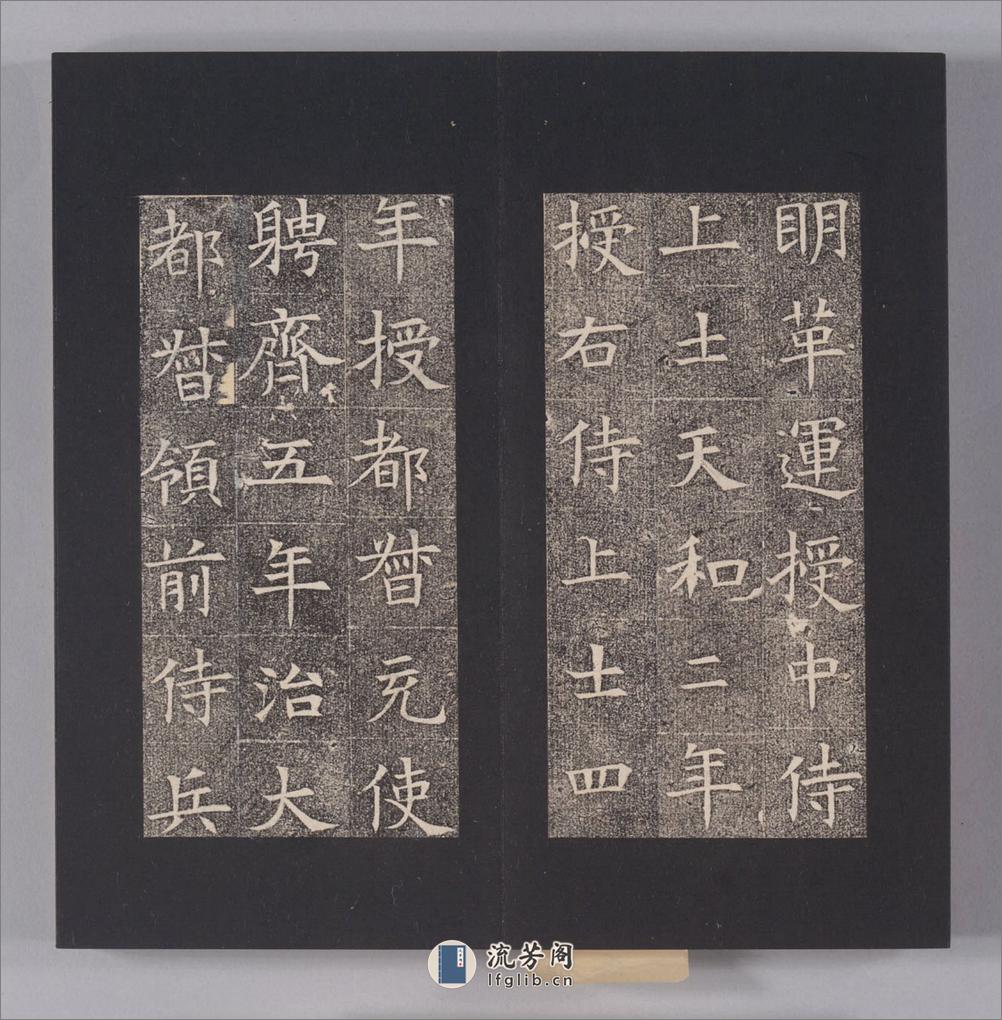 明革運授中侍
上士天和二年
授右侍上士四
年授都督充使
聘齊五年治大
都督領前侍兵
流芳阁
lfglib.cn